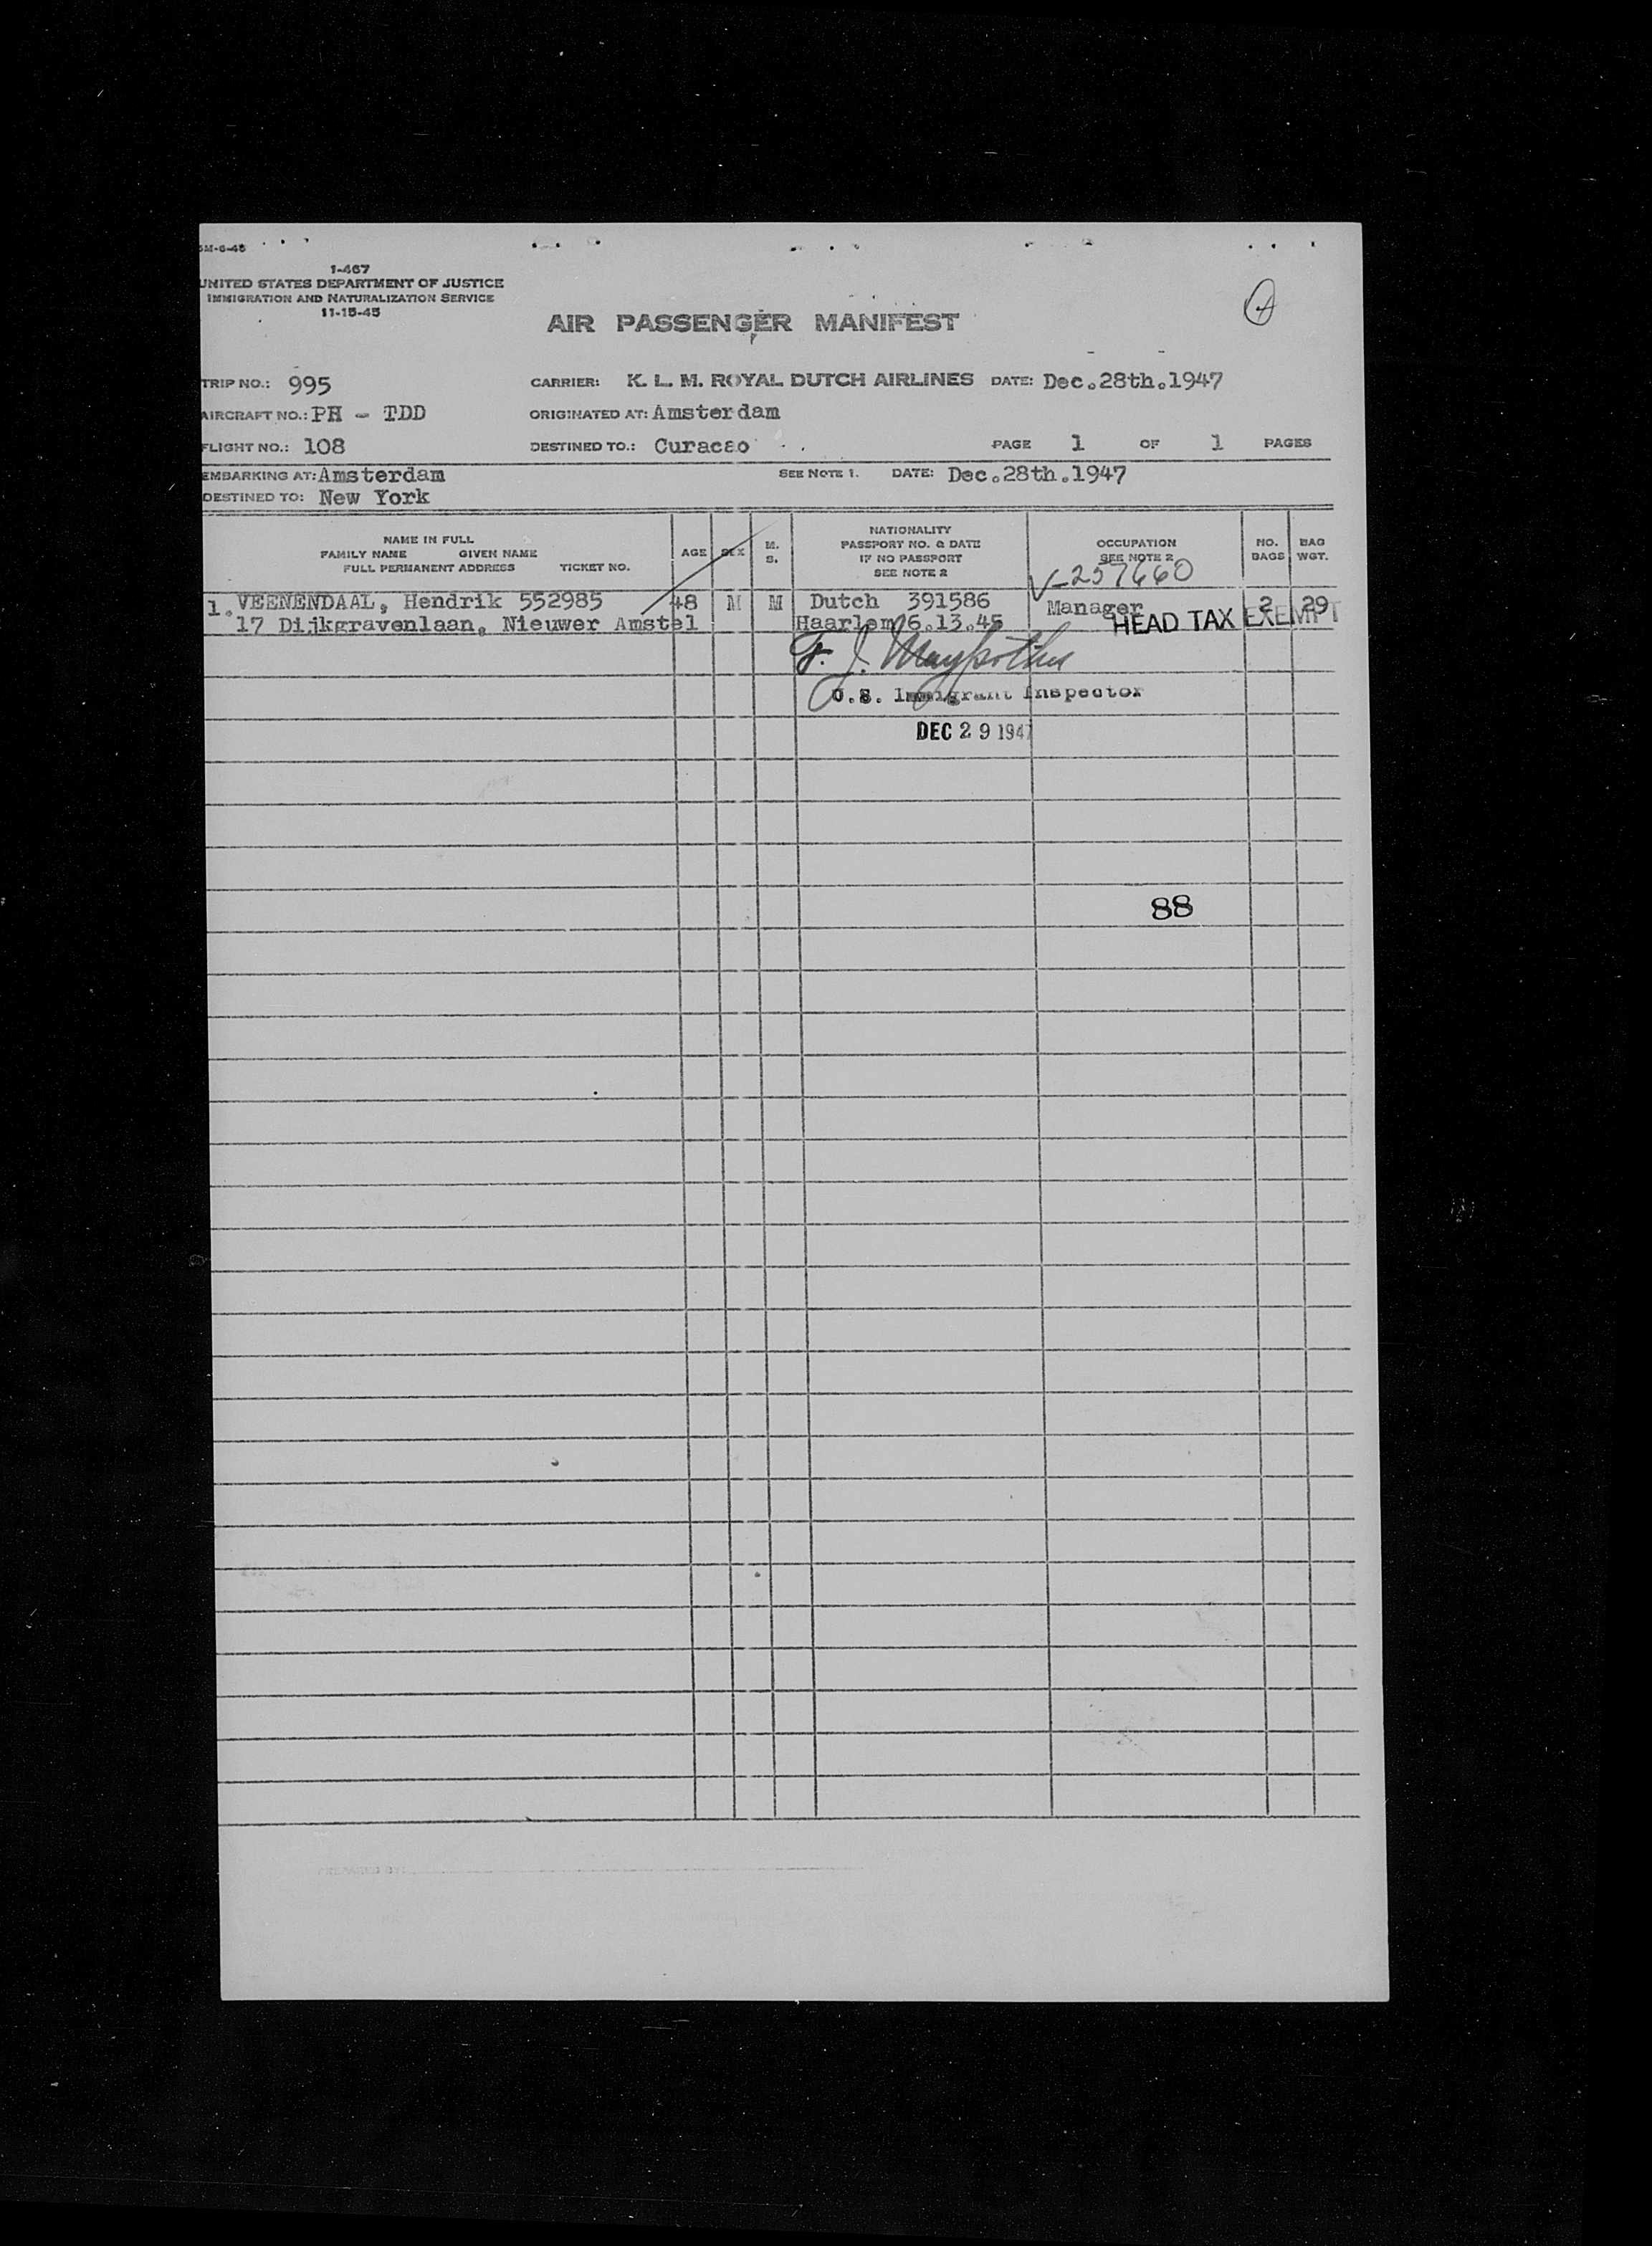 1-467
UNITED STATES DEPARTMENT OF JUSTICE
IMMIGRATION AND NATURALIZATION SERVICE
11-15-45
AIR PASSENGER MANIFEST
TRIP NO.: 995 CARRIER: K. L. M. ROYAL DUTCH AIRLINES DATE: Dec.28th.1947
AIRCRAFT NO.: PH - TDD ORIGINATED AT: Amsterdam
FLIGHT NO.: 108 DESTINED TO.: Curacao PAGE 1 OF 1 PAGES
EMBARKING AT: Amsterdam SEE NOTE 1. DATE: Dec.28th.1947
DESTINED TO: New York
NAME IN FULL
FAMILY NAME GIVEN NAME
FULL PERMANENT ADDRESS TICKET NO.
AGE
SEX
M.
S.
NATIONALITY
PASSPORT NO. & DATE
IF NO PASSPORT
SEE NOTE 2
OCCUPATION
SEE NOTE 2
NO.
BAGS
BAG
WGT.
V-257660
1. VEENENDAAL, Hendrik 552985 48 M M Dutch 391586 Manager 2 29
17 Dijkgravenlaan, Nieuwer Amstel Haarlem 6.13.45
HEAD TAX EXEMPT
F. J.
U.S. Immigrant Inspector
DEC 29 1947
88
PREPARED BY: